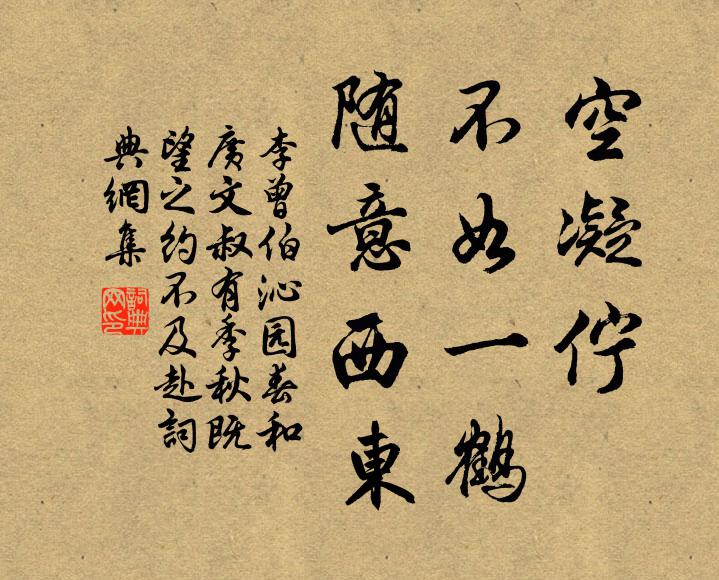 空凝佇
不如一鶴
随意西東
李曾伯沁园春和
廣文叔有季秋既
望之约不及赴詞
典網集
詞典
网印